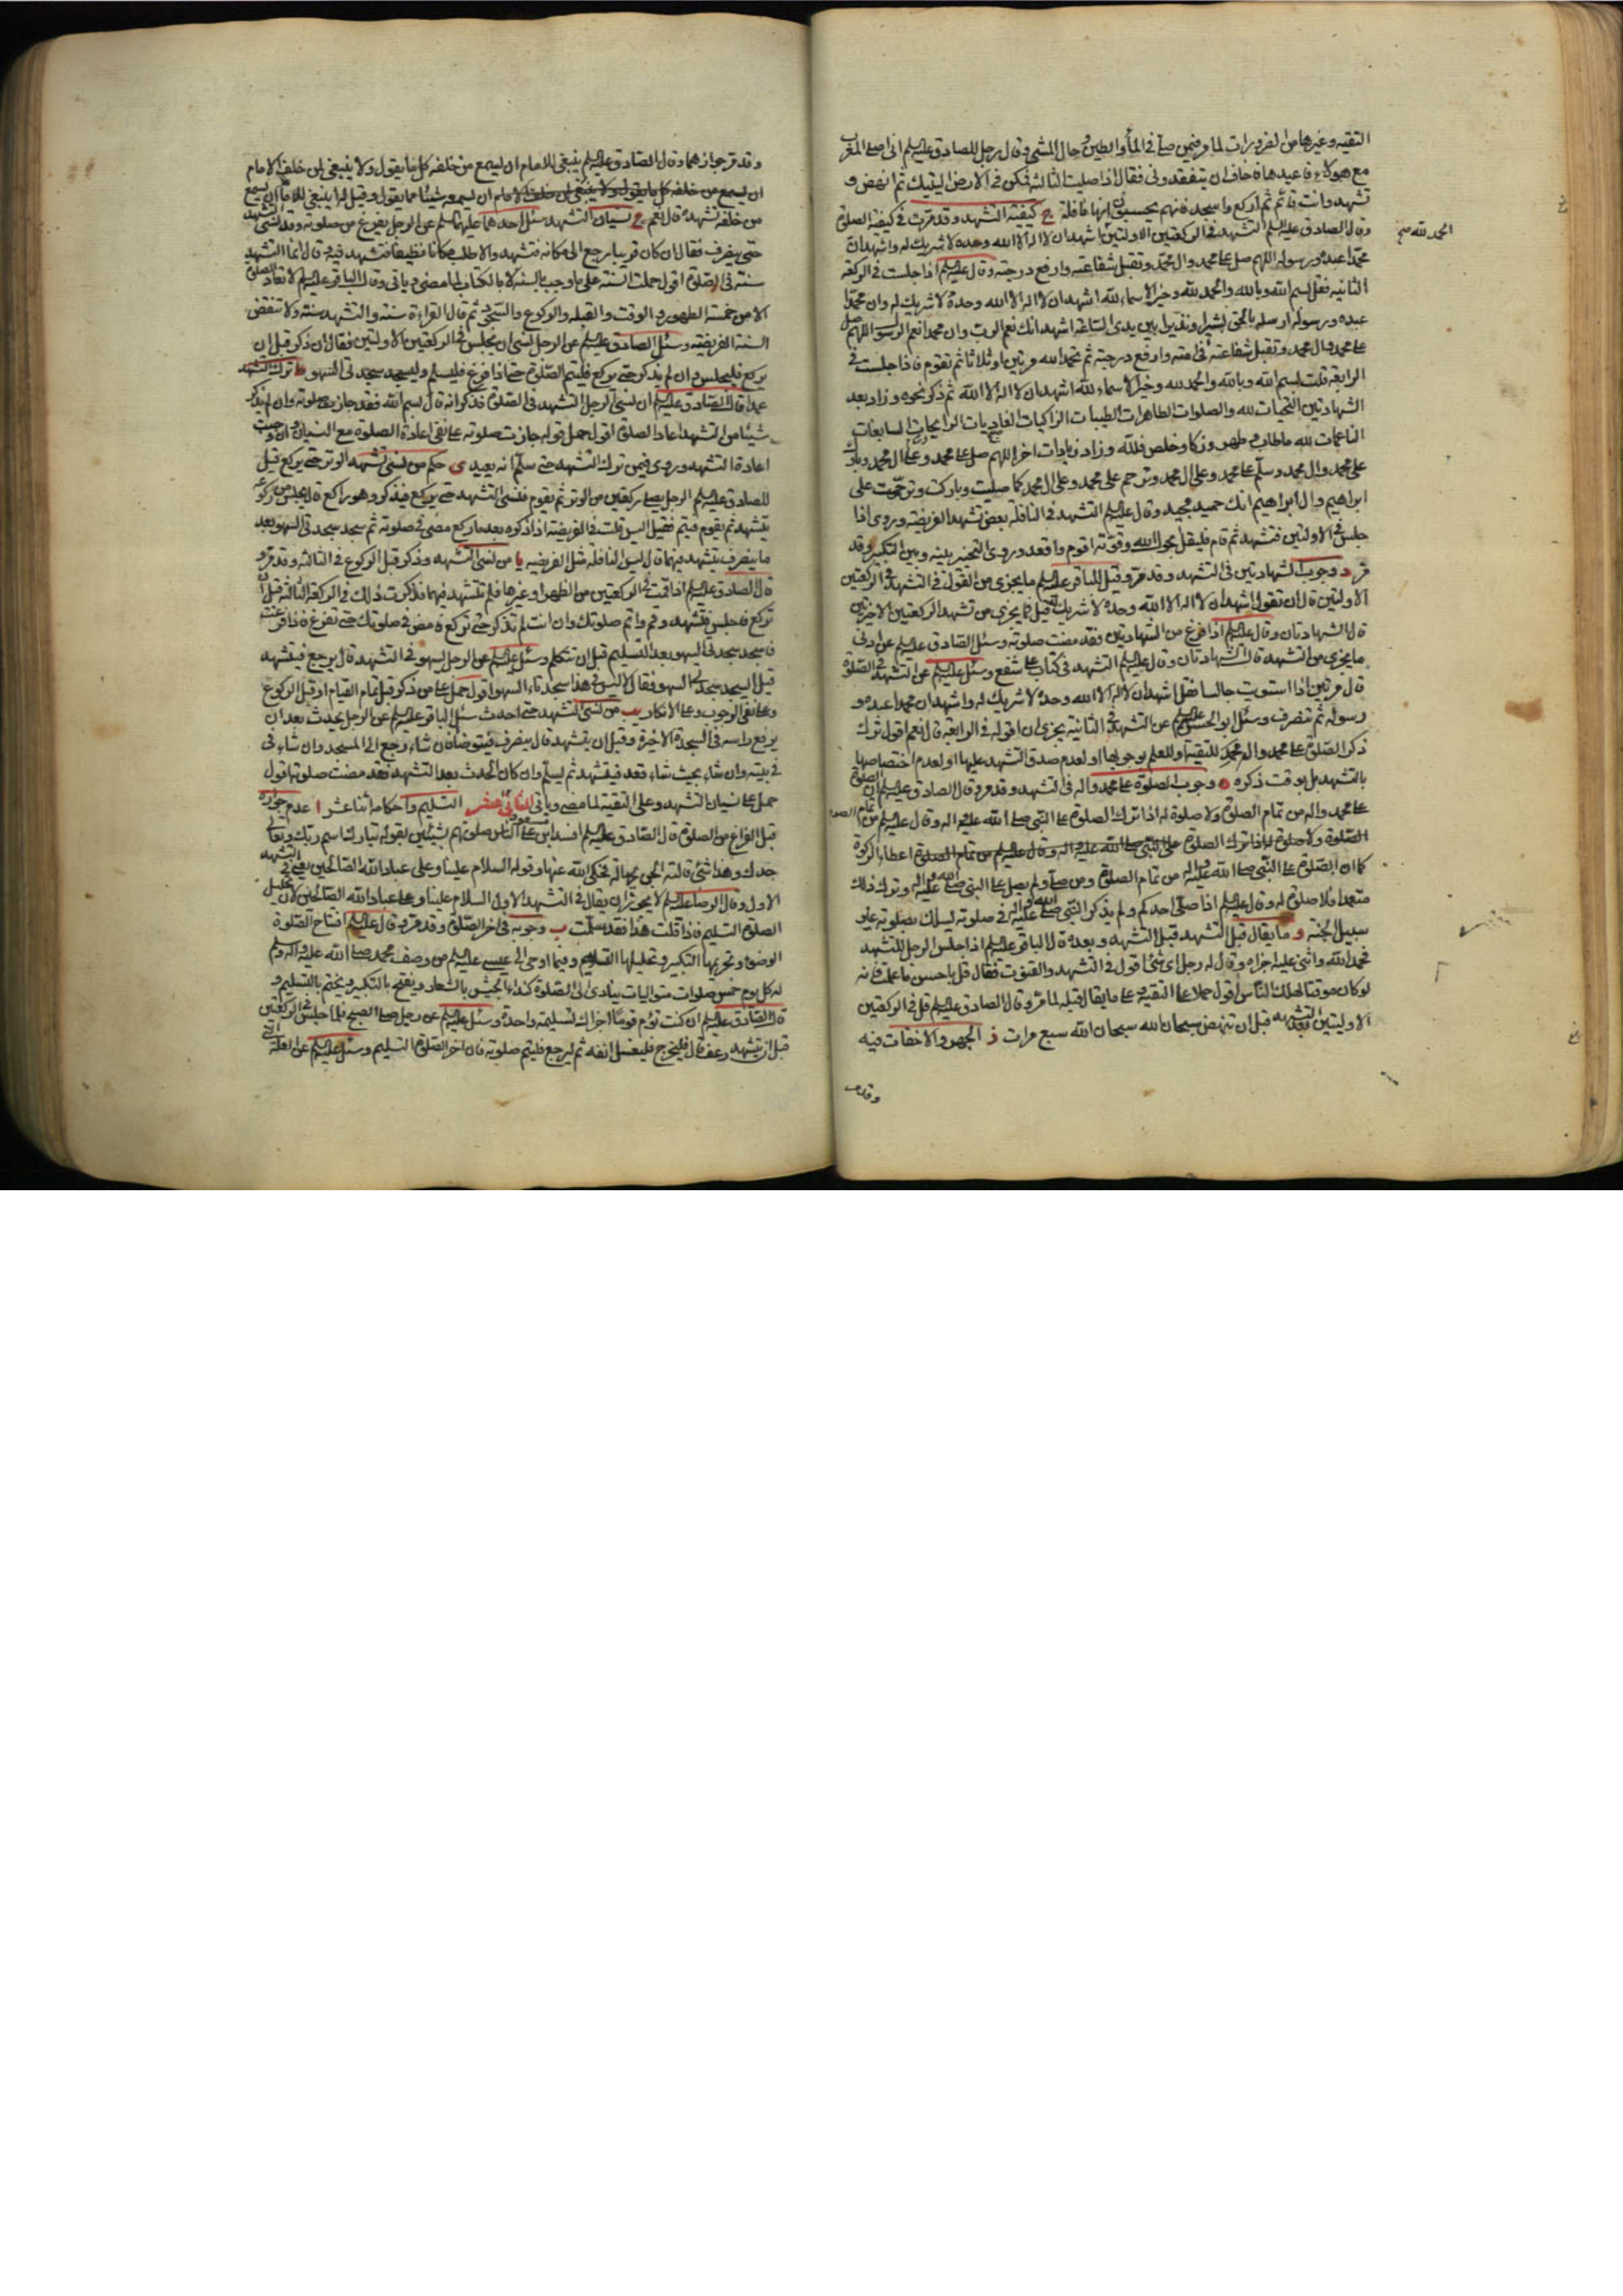 التقيه وغيرها من الضرورات لما مر فيمن صلى في الماء والطين وحال المشي وقال رجل للصادق عليه السلم اني اصلي المغرب
مع هولاء فاعيدها فاخاف ان يتفقدوني فقال اذا صليت الثالثه فكن في الارض اليتيك ثم انهض و
تشهد وانت قائم ثم اركع واسجد فانهم يحسبون انها نافلة ج كيفية التشهد وقد مرت في كيفية الصلوة
وقال الصادق عليه السلم التشهد في الركعتين الاولتين اشهد ان لا اله الا الله وحده لا شريك له واشهد ان
محمدا عبده ورسوله اللهم صل على محمد وال محمد وتقبل شفاعته وارفع درجته وقال عليه السلم اذا جلست في الركعة
الثانيه فقل بسم الله وبالله والحمد لله وخير الاسماء لله اشهد ان لا اله الا الله وحده لا شريك له وان محمدا
عبده ورسوله ارسله بالحق بشيرا ونذيرا بين يدي الساعة اشهد انك نعم الرب وان محمدا نعم الرسول اللهم صل
على محمد وال محمد وتقبل شفاعته في امته وارفع درجته ثم تحمد الله مرتين او ثلاثا ثم تقوم فاذا جلست في
الرابعة قلت بسم الله وبالله والحمد لله وخير الاسماء لله اشهد ان لا اله الا الله ثم ذكر نحوه وزاد بعد
الشهادتين التحيات لله والصلوات الطاهرات الطيبات الزاكيات الغاديات الرايحات السابغات
الناعمات لله ما طاب وطهر وزكا وخلص فلله وزاد زيادات اخر اللهم صل على محمد وعلى ال محمد وبارك
على محمد وال محمد وسلم على محمد وعلى ال محمد وترحم على محمد وعلى ال محمد كما صليت وباركت وترحمت على
ابراهيم وال ابراهيم انك حميد مجيد وقال عليه السلم التشهد في النافلة بعض تشهد الفريضة وروي اذا
جلس في الاولتين فتشهد ثم قام فليقل بحول الله وقوته اقوم واقعد وروي التخير بينه وبين التكبير وقد
مر د وجوب الشهادتين في التشهد وقد مر وقيل للباقر عليه السلم ما يجزي من القول في التشهد في الركعتين
الاولتين قال ان تقول اشهد ان لا اله الا الله وحده لا شريك له قيل فما يجزي من تشهد الركعتين الاخيرتين
قال الشهادتان وقال عليه السلم اذا فرغ من الشهادتين فقد مضت صلوته وسئل الصادق عليه السلم عن ادنى
ما يجزي من التشهد قال الشهادتان وقال عليه السلم التشهد في كتاب علي شفع وسئل عليه السلم عن التشهد في الصلوة
قال مرتين اذا استويت جالسا فقل اشهد ان لا اله الا الله وحده لا شريك له واشهد ان محمدا عبده و
رسوله ثم تنصرف وسئل ابو الحسن عليه السلم عن التشهد في الثانية يجزي ان اقوله في الرابعة قال نعم اقول ترك
ذكر الصلوة على محمد وال محمد للتقية او للعلم بوجوبها او لعدم صدق التشهد عليها او لعدم اختصاصها
بالتشهد بل بوقت ذكره ه وجوب الصلوة على محمد واله في التشهد وقد مر وقال الصادق عليه السلم ان الصلوة
على محمد واله من تمام الصلوة ولا صلوة له اذا ترك الصلوة على النبي صلى الله عليه واله وقال عليه السلم من تمام الصلوة
الصلوة ولا صلوة له اذا ترك الصلوة على النبي صلى الله عليه واله وقال عليه السلم من تمام الصلوة اعطاء الزكوة
كما ان الصلوة على النبي صلى الله عليه واله من تمام الصلوة ومن صلى ولم يصل على النبي صلى الله عليه واله وترك ذلك
متعمدا فلا صلوة له وقال عليه السلم اذا صلى احدكم ولم يذكر النبي صلى الله عليه واله في صلوته يسلك بصلوته غير
سبيل الجنة و ما يقال قبل التشهد وبعده قال الباقر عليه السلم اذا جلس الرجل للتشهد
فحمد الله واثنى عليه اجزاه وقال له رجل اي شئ اقول في التشهد والقنوت فقال قل باحسن ما علمت فانه
لو كان موقتا لهلك الناس اقول حملا على التقية وعلى ما يقال قبله لما مر وقال الصادق عليه السلم قل في الركعتين
الاولتين بعد التشهد قبل ان تنهض سبحان الله سبحان الله سبع مرات ز الجهر والاخفات فيه
وقد مر
الحمد لله صح
وقد مر جوازهما وقال الصادق عليه السلم ينبغي للامام ان يسمع من خلفه كل ما يقول ولا ينبغي لمن خلف الامام
ان يسمع من خلفه كل ما يقول ولا ينبغي لمن خلف الامام ان يسمعه شيئا مما يقول وقيل له ينبغي للامام ان يسمع
من خلفه تشهده قال نعم ح نسيان التشهد سئل احدهما عليهما السلم عن الرجل يفرغ من صلوته وقد نسي التشهد
حتى ينصرف فقال ان كان قريبا رجع الى مكانه فتشهد والا طلب مكانا نظيفا فتشهد فيه وقال انما التشهد
سنة في الصلوة اقول حملت السنة على ما وجب بالسنة لا بالكتاب لما مضى وياتي وقال الباقر عليه السلم لا تعاد الصلوة
الا من خمسة الطهور والوقت والقبله والركوع والسجود ثم قال القراءة سنة والتشهد سنة ولا تنقض
السنة الفريضة وسئل الصادق عليه السلم عن الرجل نسي ان يجلس في الركعتين الاولتين فقال ان ذكر قبل ان
يركع فليجلس وان لم يذكر حتى يركع فليتم الصلوة حتى اذا فرغ فليسلم وليسجد سجدتي السهو ط ترك التشهد
عمدا قال الصادق عليه السلم ان نسي الرجل التشهد في الصلوة فذكر انه قال بسم الله فقد جازت صلوته وان لم يذكر
شيئا من التشهد اعاد الصلوة اقول حمل قوله جازت صلوته على نفي اعادة الصلوة مع النسيان وان وجبت
اعادة التشهد وروي فيمن ترك التشهد حتى سلم انه يعيد ى حكم من نسي تشهد الوتر حتى يركع قيل
للصادق عليه السلم الرجل يصلي ركعتين من الوتر ثم يقوم فنسي التشهد حتى يركع فيذكر وهو راكع قال يجلس من ركوعه
يتشهد ثم يقوم فيتم فقيل اليس قلت في الفريضة اذا ذكره بعد ما ركع مضى في صلوته ثم سجد سجدتي السهو بعد
ما ينصرف يتشهد فيهما قال ليس النافلة مثل الفريضه يا من نسي التشهد وذكر قبل الركوع في الثالثة وقد مر و
قال الصادق عليه السلم اذا قمت في الركعتين من الظهر او غيرها فلم تتشهد فيهما فذكرت ذلك في الركعة الثالثة قبل ان
تركع فاجلس فتشهد وقم واتم صلوتك وان انت لم تذكر حتى تركع فامض في صلوتك حتى تفرغ فاذا فرغت
فاسجد سجدتي السهو بعد التسليم قبل ان تتكلم وسئل عليه السلم عن الرجل يسهو في التشهد قال يرجع فيتشهد
قيل ايسجد سجدتي السهو فقال لا ليس في هذا سجدتا السهو اقول حمل على من ذكر قبل تمام القيام او قبل الركوع
وعلى نفي الوجوب وعلى الانكار يب من نسي التشهد حتى احدث سئل الباقر عليه السلم عن الرجل يحدث بعد ان
يرفع راسه في السجدة الاخيرة وقبل ان يتشهد قال ينصرف فيتوضا فان شاء رجع الى المسجد وان شاء في
في بيته وان شاء حيث شاء قعد فيتشهد ثم يسلم وان كان الحدث بعد التشهد فقد مضت صلوته اقول
حمل على نسيان التشهد وعلى التقية لما مضى وياتي الثاني عشر التسليم واحكامه اثنا عشر ا عدم جوازه
قبل الفراغ من الصلوة قال الصادق عليه السلم افسد ابن مسعود على الناس صلوتهم بشيئين بقوله تبارك اسم ربك وتعالى
جدك وهذا شئ قالته الجن بجهالة فحكى الله عنها وقوله السلام علينا وعلى عباد الله الصالحين يعني في التشهد
الاول وقال الرضا عليه السلم لا يجوز ان يقال في التشهد الاول السلام علينا وعلى عباد الله الصالحين لان تحليل
الصلوة التسليم فاذا قلت هذا فقد سلمت ب وجوبه في اخر الصلوة وقد مر وقال عليه السلم افتتاح الصلوة
الوضوء وتحريمها التكبير وتحليلها التسليم وفيما اوحى الى عيسى عليه السلم من وصف محمد صلى الله عليه واله وسلم
له كل يوم خمس صلوات متواليات ينادى الى الصلوة كنداء الجيش بالشعار ويفتتح بالتكبير ويختتم بالتسليم و
قال الصادق عليه السلم ان كنت تؤم قوما اجزاك تسليمة واحدة وسئل عليه السلم عن رجل صلى الصبح فلما جلس في الركعتين
قبل ان يتشهد رعف قال فليخرج فليغسل انفه ثم ليرجع فليتم صلوته فان اخر الصلوة التسليم وسئل عليه السلم عن العلة التي